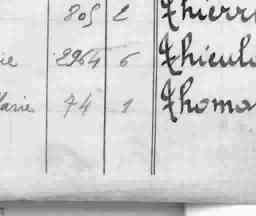 805 2 Thierr
ie 2964 6 Thieul
Marie 74 1 Thoma